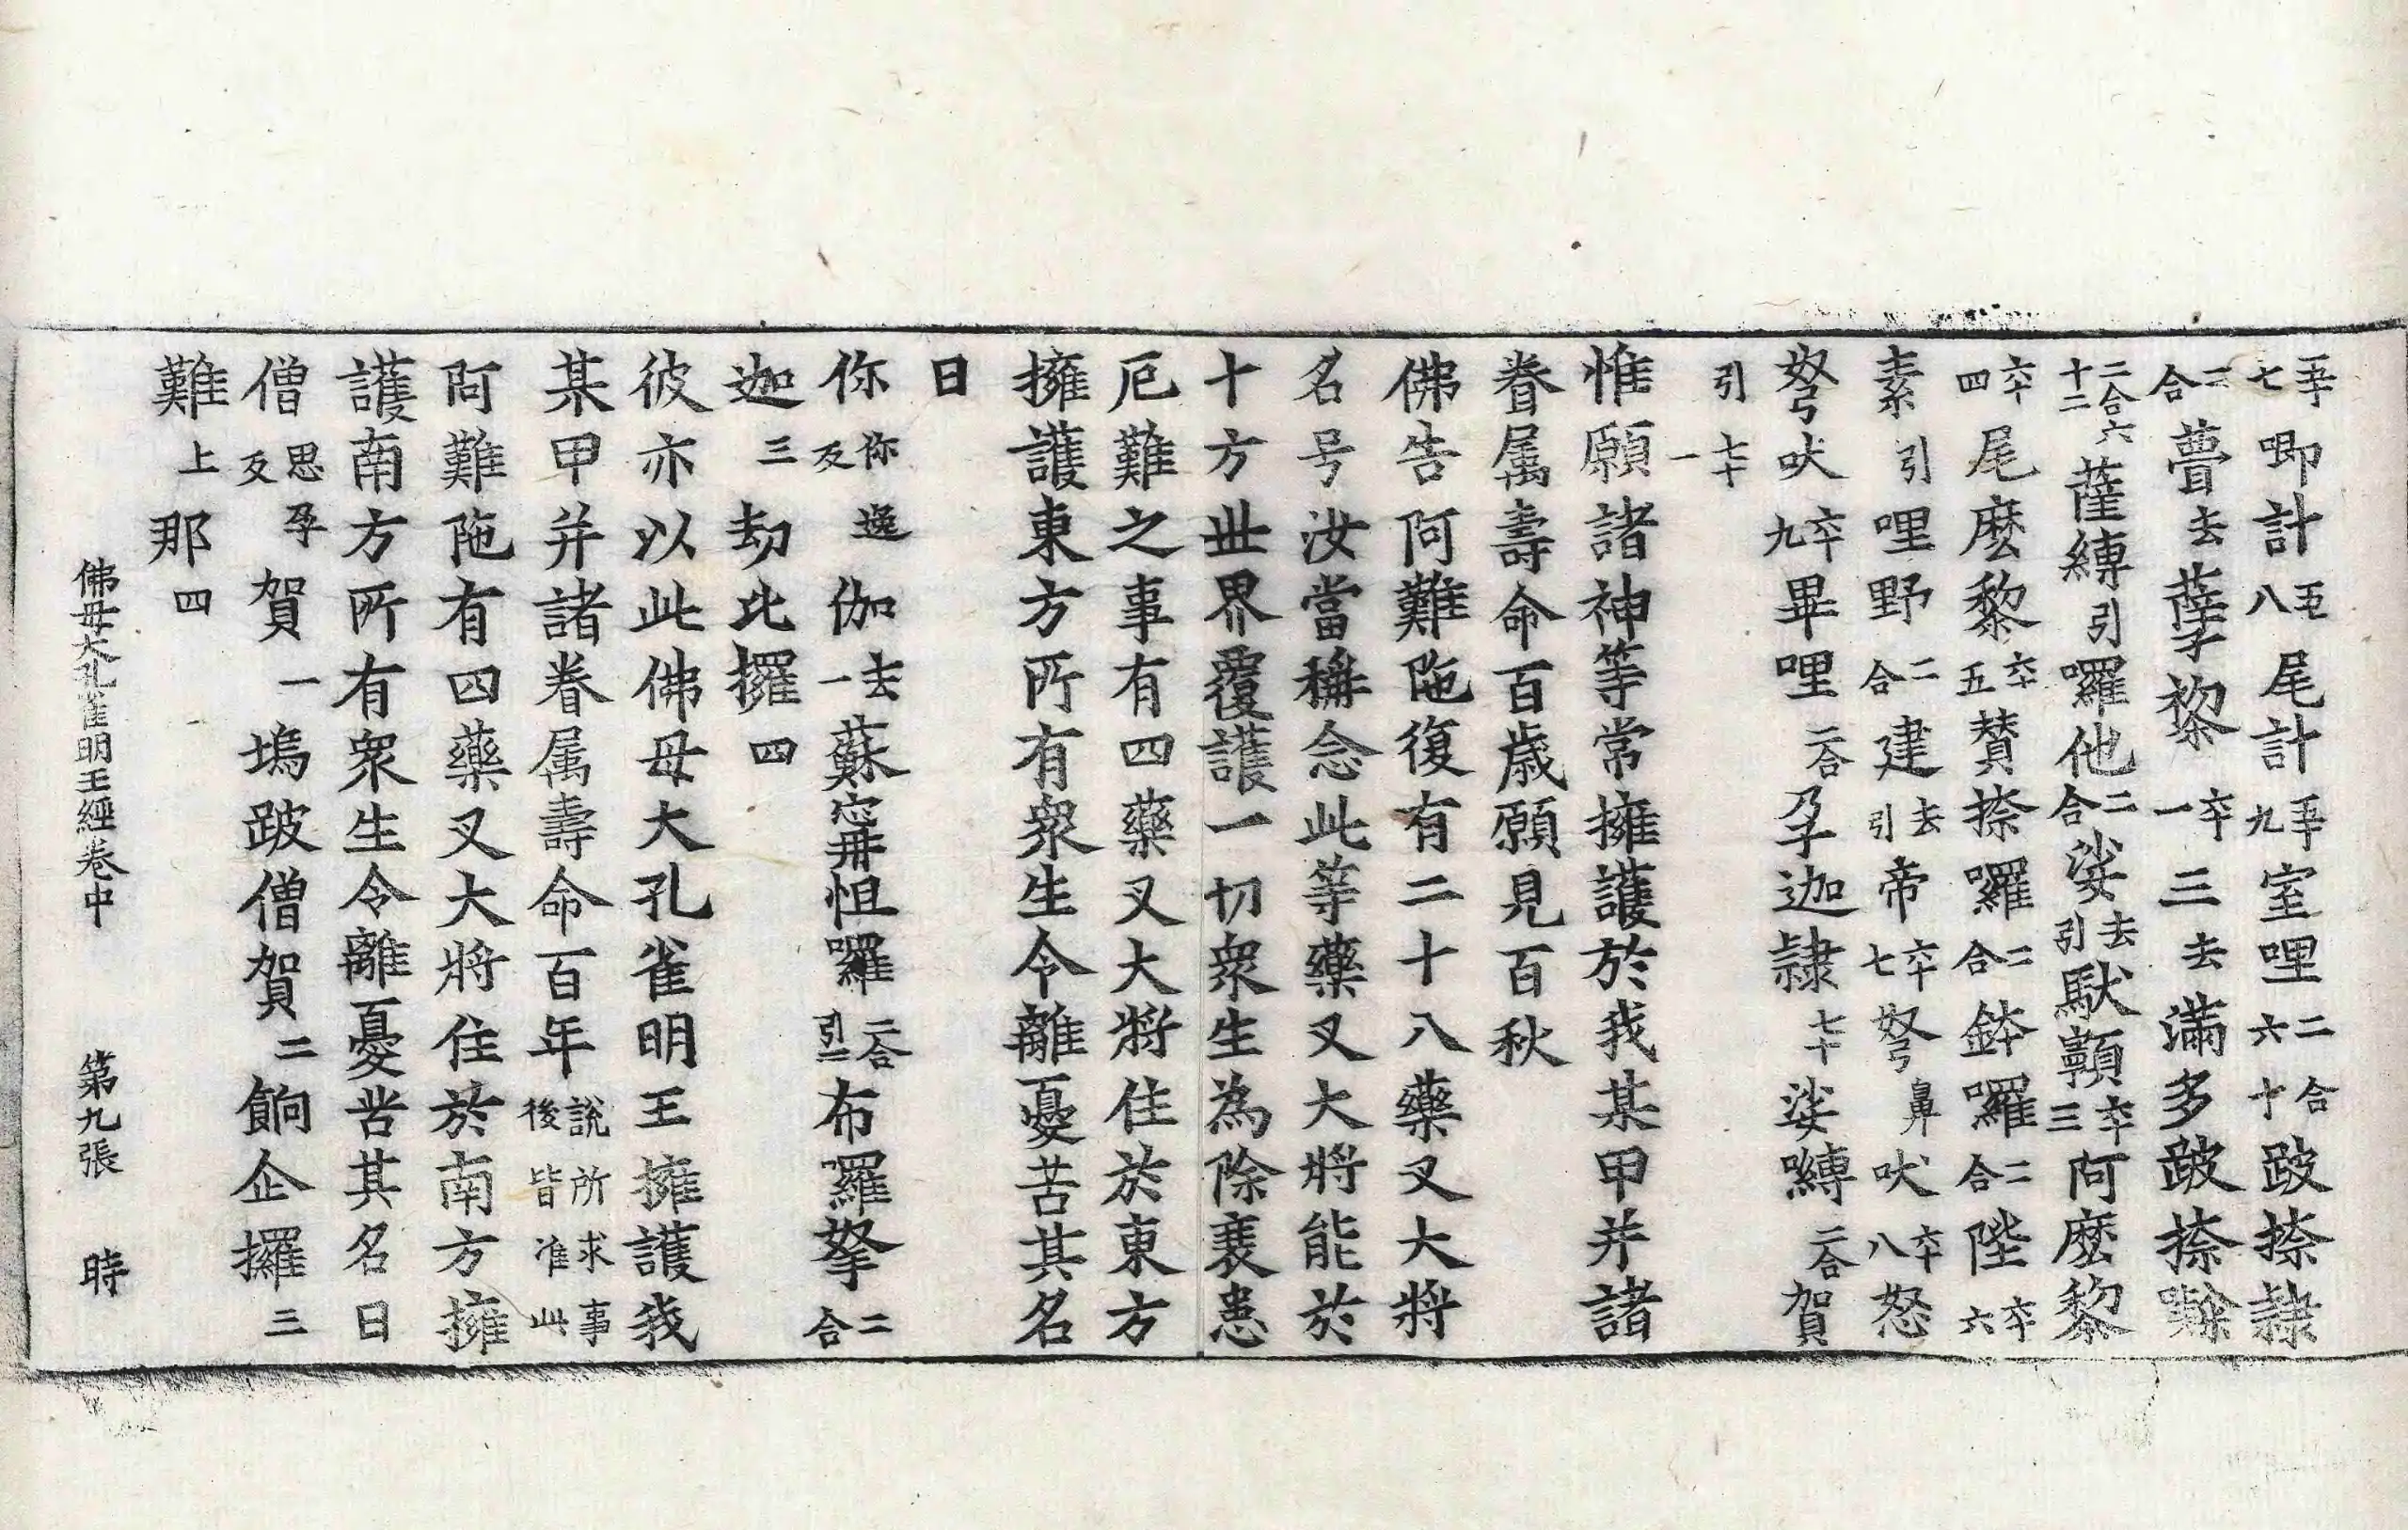 五十七唧計五十八尾計五十九室哩二合六十跛捺隸
二合瞢去孽黎六十一三去滿多跛捺㘑
二合六十二薩縛引囉他二合娑去引馱顐六十三阿麼黎
六十四尾麼黎六十五賛捺囉二合鉢囉二合陛六十六
素引哩野二合建去引帝六十七弩鼻吠六十八怒
弩吠六十九畢哩二合孕迦隸七十娑嚩二合賀
引七十一
惟願諸神等常擁護於我某甲并諸
眷属壽命百歲願見百秋
佛告阿難陁復有二十八藥叉大將
名号汝當稱念此等藥叉大將能於
十方世界覆護一切衆生為除衰患
厄難之事有四藥叉大將住於東方
擁護東方所有衆生令離憂苦其名
曰
你你逸反伽去一蘇寧怛囉二合引二布囉拏二合
迦三劫比攞四
彼亦以此佛母大孔雀明王擁護我
某甲并諸眷属壽命百年說所求事後皆准此
阿難陁有四藥叉大將住於南方擁
護南方所有衆生令離憂苦其名曰
僧思孕反賀一塢跛僧賀二餉企攞三
難上那四
佛母大孔雀明王經卷中 第九張 時